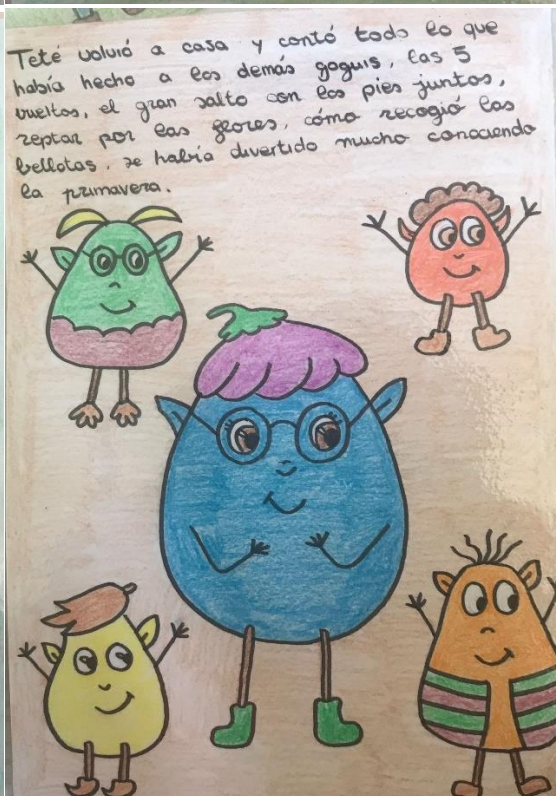 Teté volvió a casa y contó todo lo que
había hecho a los demás goguis, las 5
vueltas, el gran salto con los pies juntos,
reptar por las flores, cómo recogió las
bellotas, se había divertido mucho conociendo
la primavera.